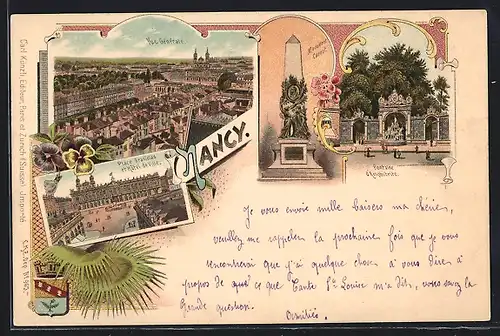 Vue Générale
Monument Carnot.
NANCY.
Place Stanislas
et Hôtel de Ville.
Fontaine
d'Amphitrite.
Carl Künzli, Editeur, Paris et Zürich (Suisse).
Je vous envoie mille baisers ma chérie,
veuillez me rappeler la prochaine fois que je vous
rencontrerai que j'ai quelque chose à vous dire à
propos de que ce que Tante St Louise m'a dit, vous savez la
Grande question.
Amitiés.